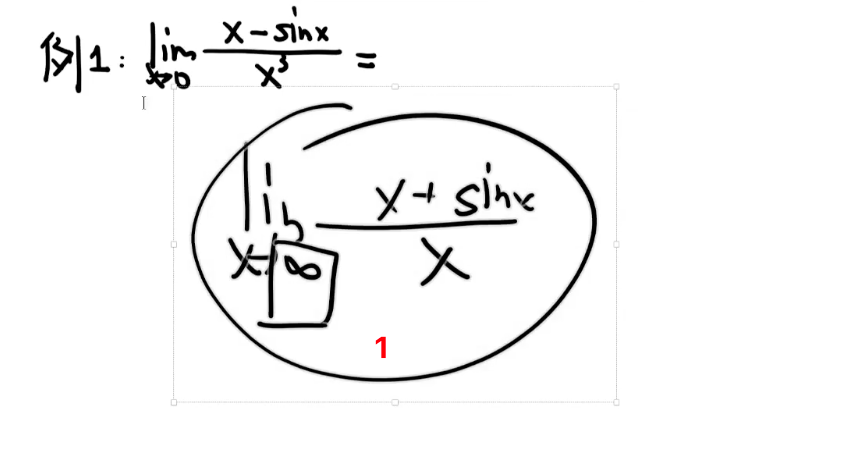 例1: lim x→0 (x - sinx)/x³ =
lim x→∞ (x + sinx)/x
1